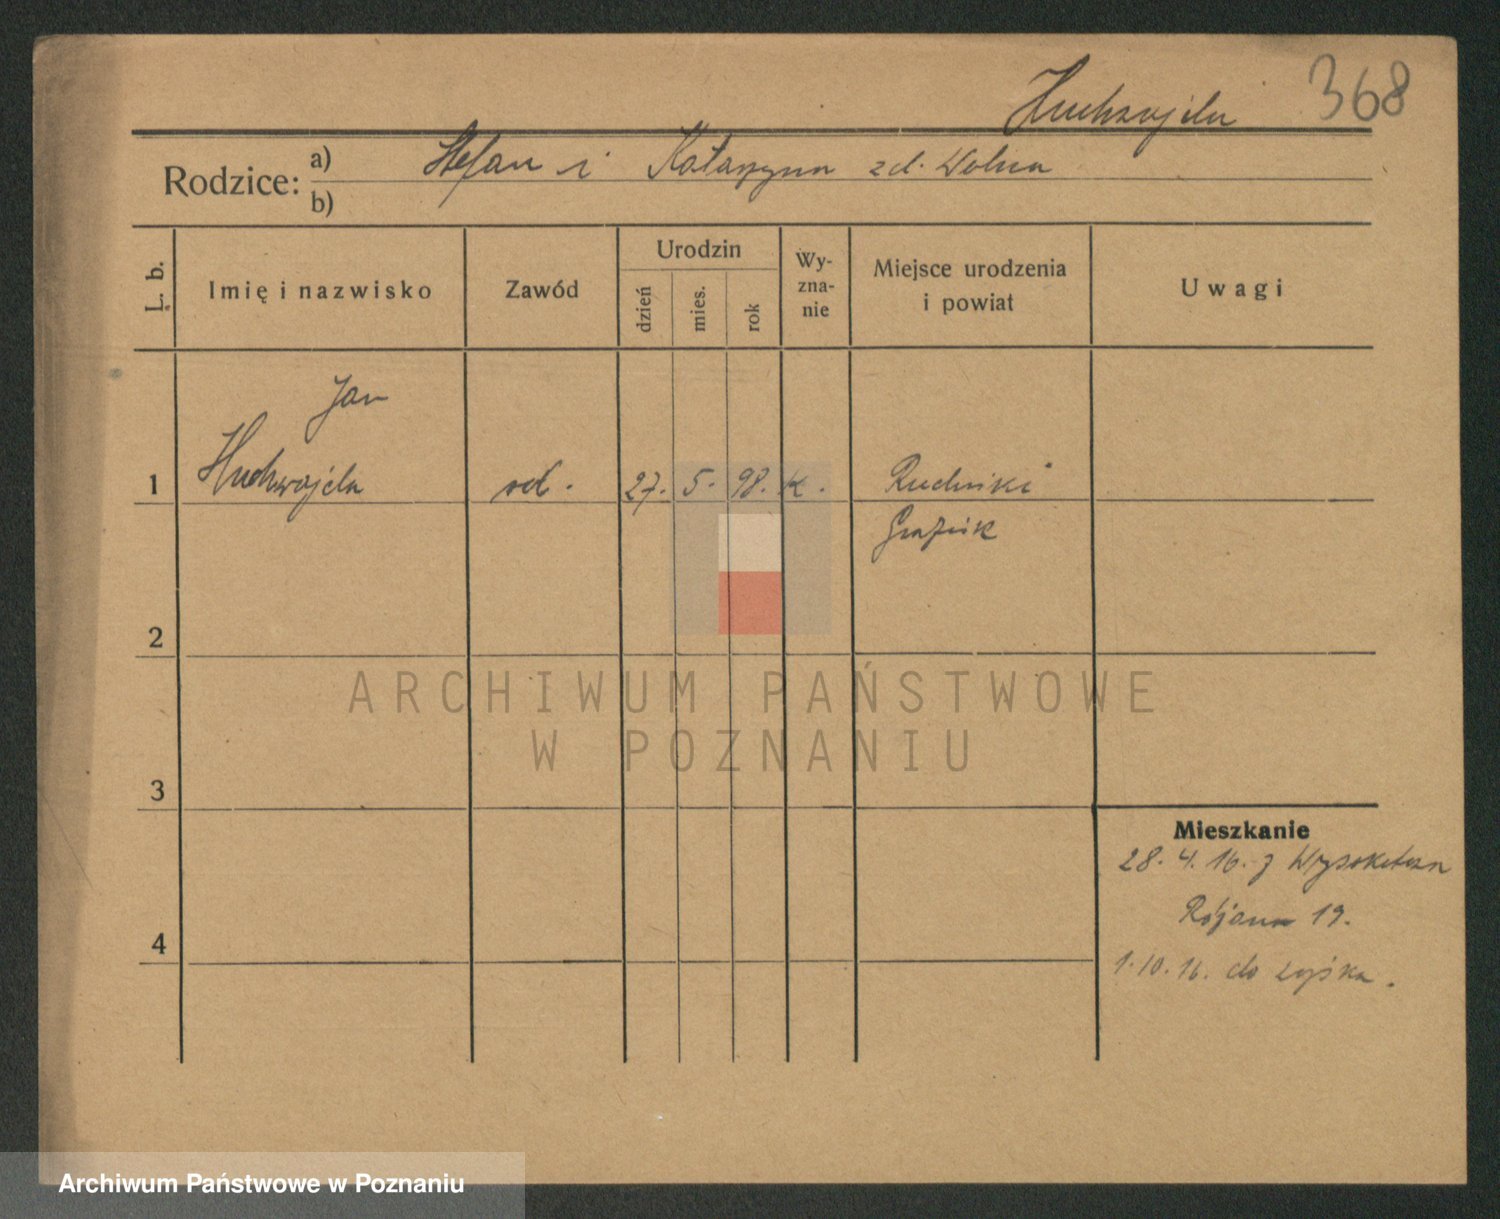 368
Rodzice: a) Stefan i Katarzyna zd. Wolna
b)
L. b.
Imię i nazwisko
Zawód
Urodzin
dzień
mies.
rok
Wy-
zna-
nie
Miejsce urodzenia
i powiat
Uwagi
Jan
1 27. 5. 98. k. Rudniki
2
3
4
Mieszkanie
28. 4. 16. z
19.
1.10.16. do
ARCHIWUM PAŃSTWOWE
W POZNANIU
Archiwum Państwowe w Poznaniu